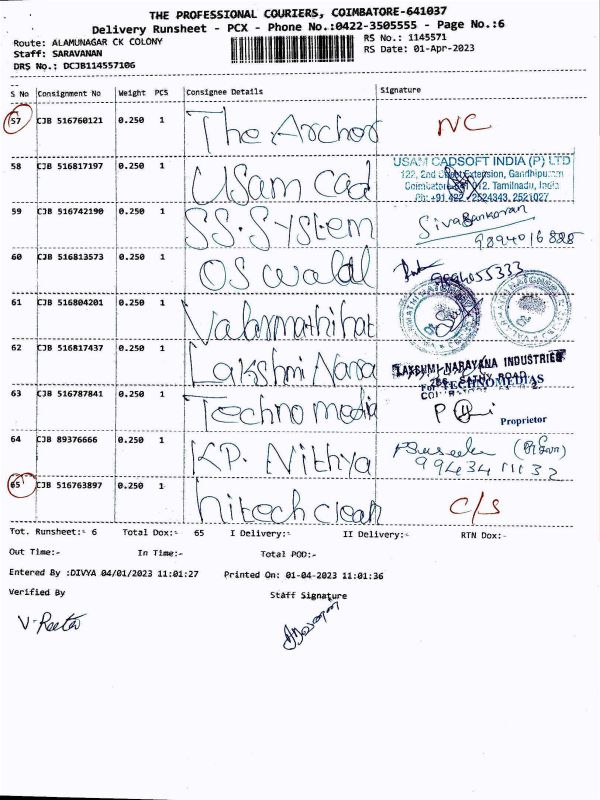 THE PROFESSIONAL COURIERS, COIMBATORE-641037
Delivery Runsheet - PCX - Phone No.:0422-3505555 - Page No.:6
Route: ALAMUNAGAR CK COLONY
RS No.: 1145571
Staff: SARAVANAN
RS Date: 01-Apr-2023
DRS No.: DCJB114557106
S No Consignment No Weight PCS Consignee Details Signature
57 CJB 516760121 0.250 1 The Archor NC
58 CJB 516817197 0.250 1 Usam Cad
USAM CADSOFT INDIA (P) LTD
122, 2nd Extension, Gandhipuram
Coimbatore-641 012. Tamilnadu, India
Ph:+91 422 - 2524343, 2521027
59 CJB 516742190 0.250 1 SS.System Sivasankaran
9894016828
60 CJB 516813573 0.250 1 OS wald
61 CJB 516804201 0.250 1 Valarmathihat
62 CJB 516817437 0.250 1 Lakshmi Nara
LAXSHMI NARAYANA INDUSTRIES
63 CJB 516787841 0.250 1 Techno media
For TECHNOMEDIAS
Proprietor
64 CJB 89376666 0.250 1 KP. Nithya
9943411132
65 CJB 516763897 0.250 1 hitech clean C/S
Tot. Runsheet:- 6 Total Dox:- 65 I Delivery:- II Delivery:- RTN Dox:-
Out Time:- In Time:- Total POD:-
Entered By :DIVYA 04/01/2023 11:01:27 Printed On: 01-04-2023 11:01:36
Verified By Staff Signature
V. Reeta